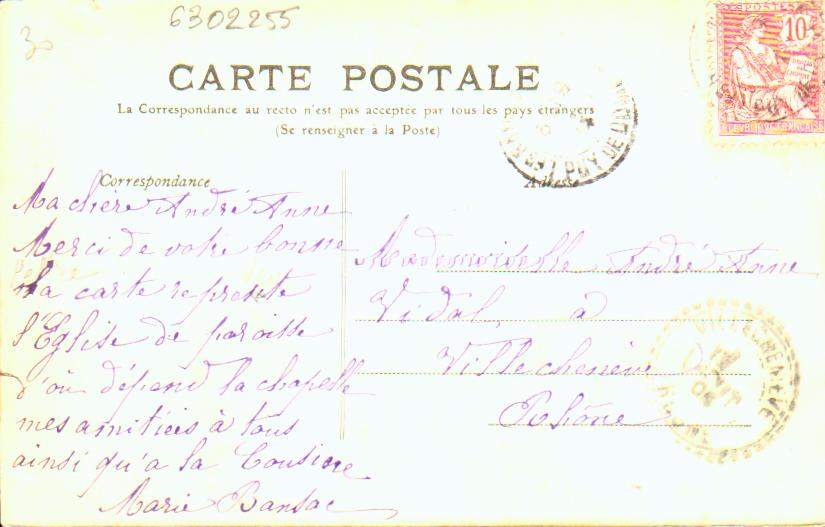 6302255
30
POSTES
10
DROITS DE L'HOMME
REPUBLIQUE FRANÇAISE
CARTE POSTALE
La Correspondance au recto n'est pas acceptée par tous les pays étrangers
(Se renseigner à la Poste)
PUY DE
Correspondance
Adresse
Ma chère André Anne
Merci de votre bonne
la carte represte
l'Eglise de paroisse
d'où dépend la chapelle
mes amitiées à tous
ainsi qu'a la Cousine
Marie Bansac
Mademoiselle André Anne
Vidal, à
Villechenève
Rhône
VILLECHENEVE